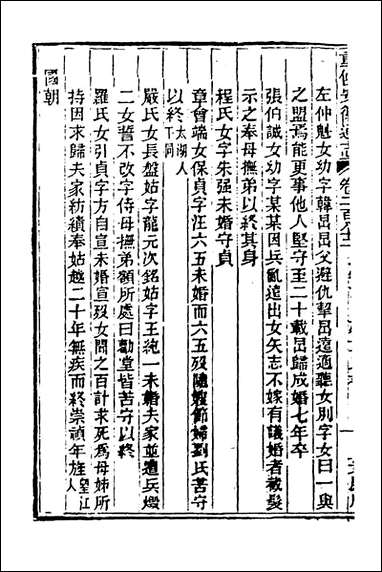 重修安徽通志 卷二百六十
左仲魁女幼字韓昌昌父避仇挈昌遠適聽女別字女曰一與
之盟焉能更事他人堅守至二十載昌歸成婚七年卒
張伯誠女幼字某某因兵亂遠出女矢志不嫁有議婚者截髮
示之奉母撫弟以終其身
程氏女字朱强未婚守貞
章會端女保貞字汪六五未婚而六五歿隨嫂節婦劉氏苦守
以終太湖人下同
嚴氏女長盤姑字龍元次銘姑字王純一未婚夫家並遭兵燬
二女誓不改字侍母撫弟額所處曰勵堂皆苦守以終
羅氏女引貞字方自宣未婚宣歿女聞之百計求死爲母姊所
持因求歸夫家紡績奉姑越二十年無疾而終崇禎年旌望江人
國朝